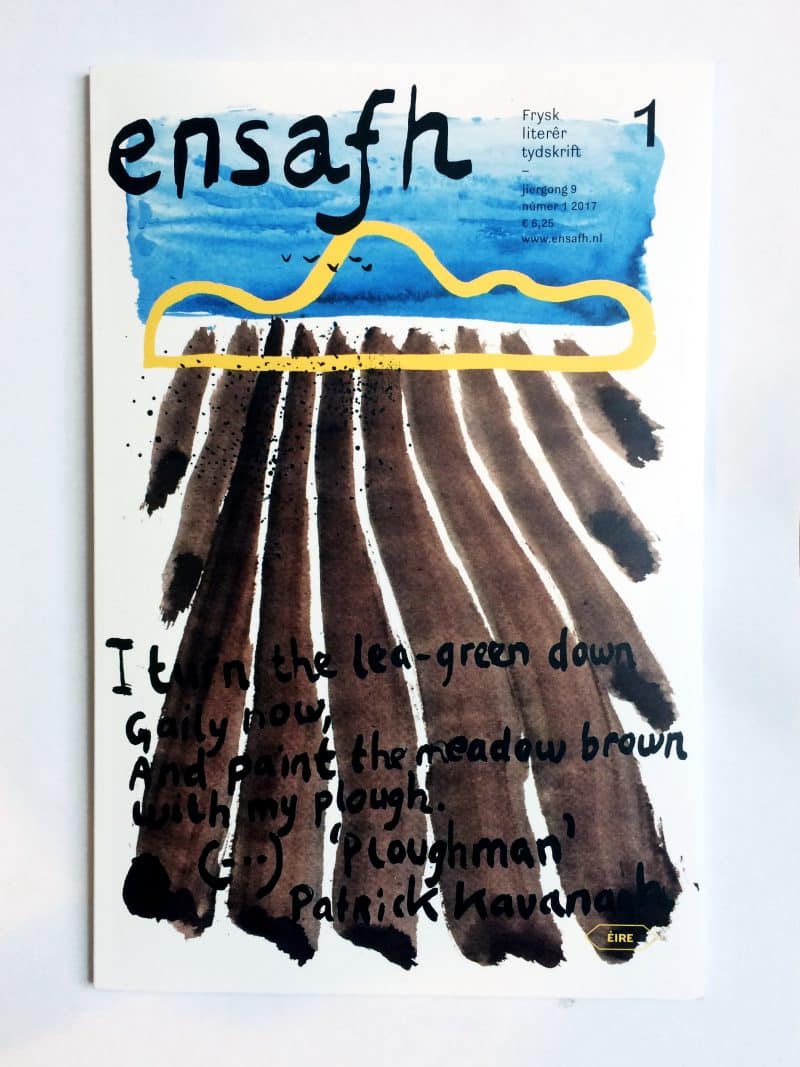 ensafh
Frysk
literêr
tydskrift
–
jiergong 9
nûmer 1 2017
€ 6,25
www.ensafh.nl
1
I turn the lea-green down
Gaily now,
And paint the meadow brown
with my plough.
(...) 'Ploughman'
Patrick Kavanagh
ÉIRE